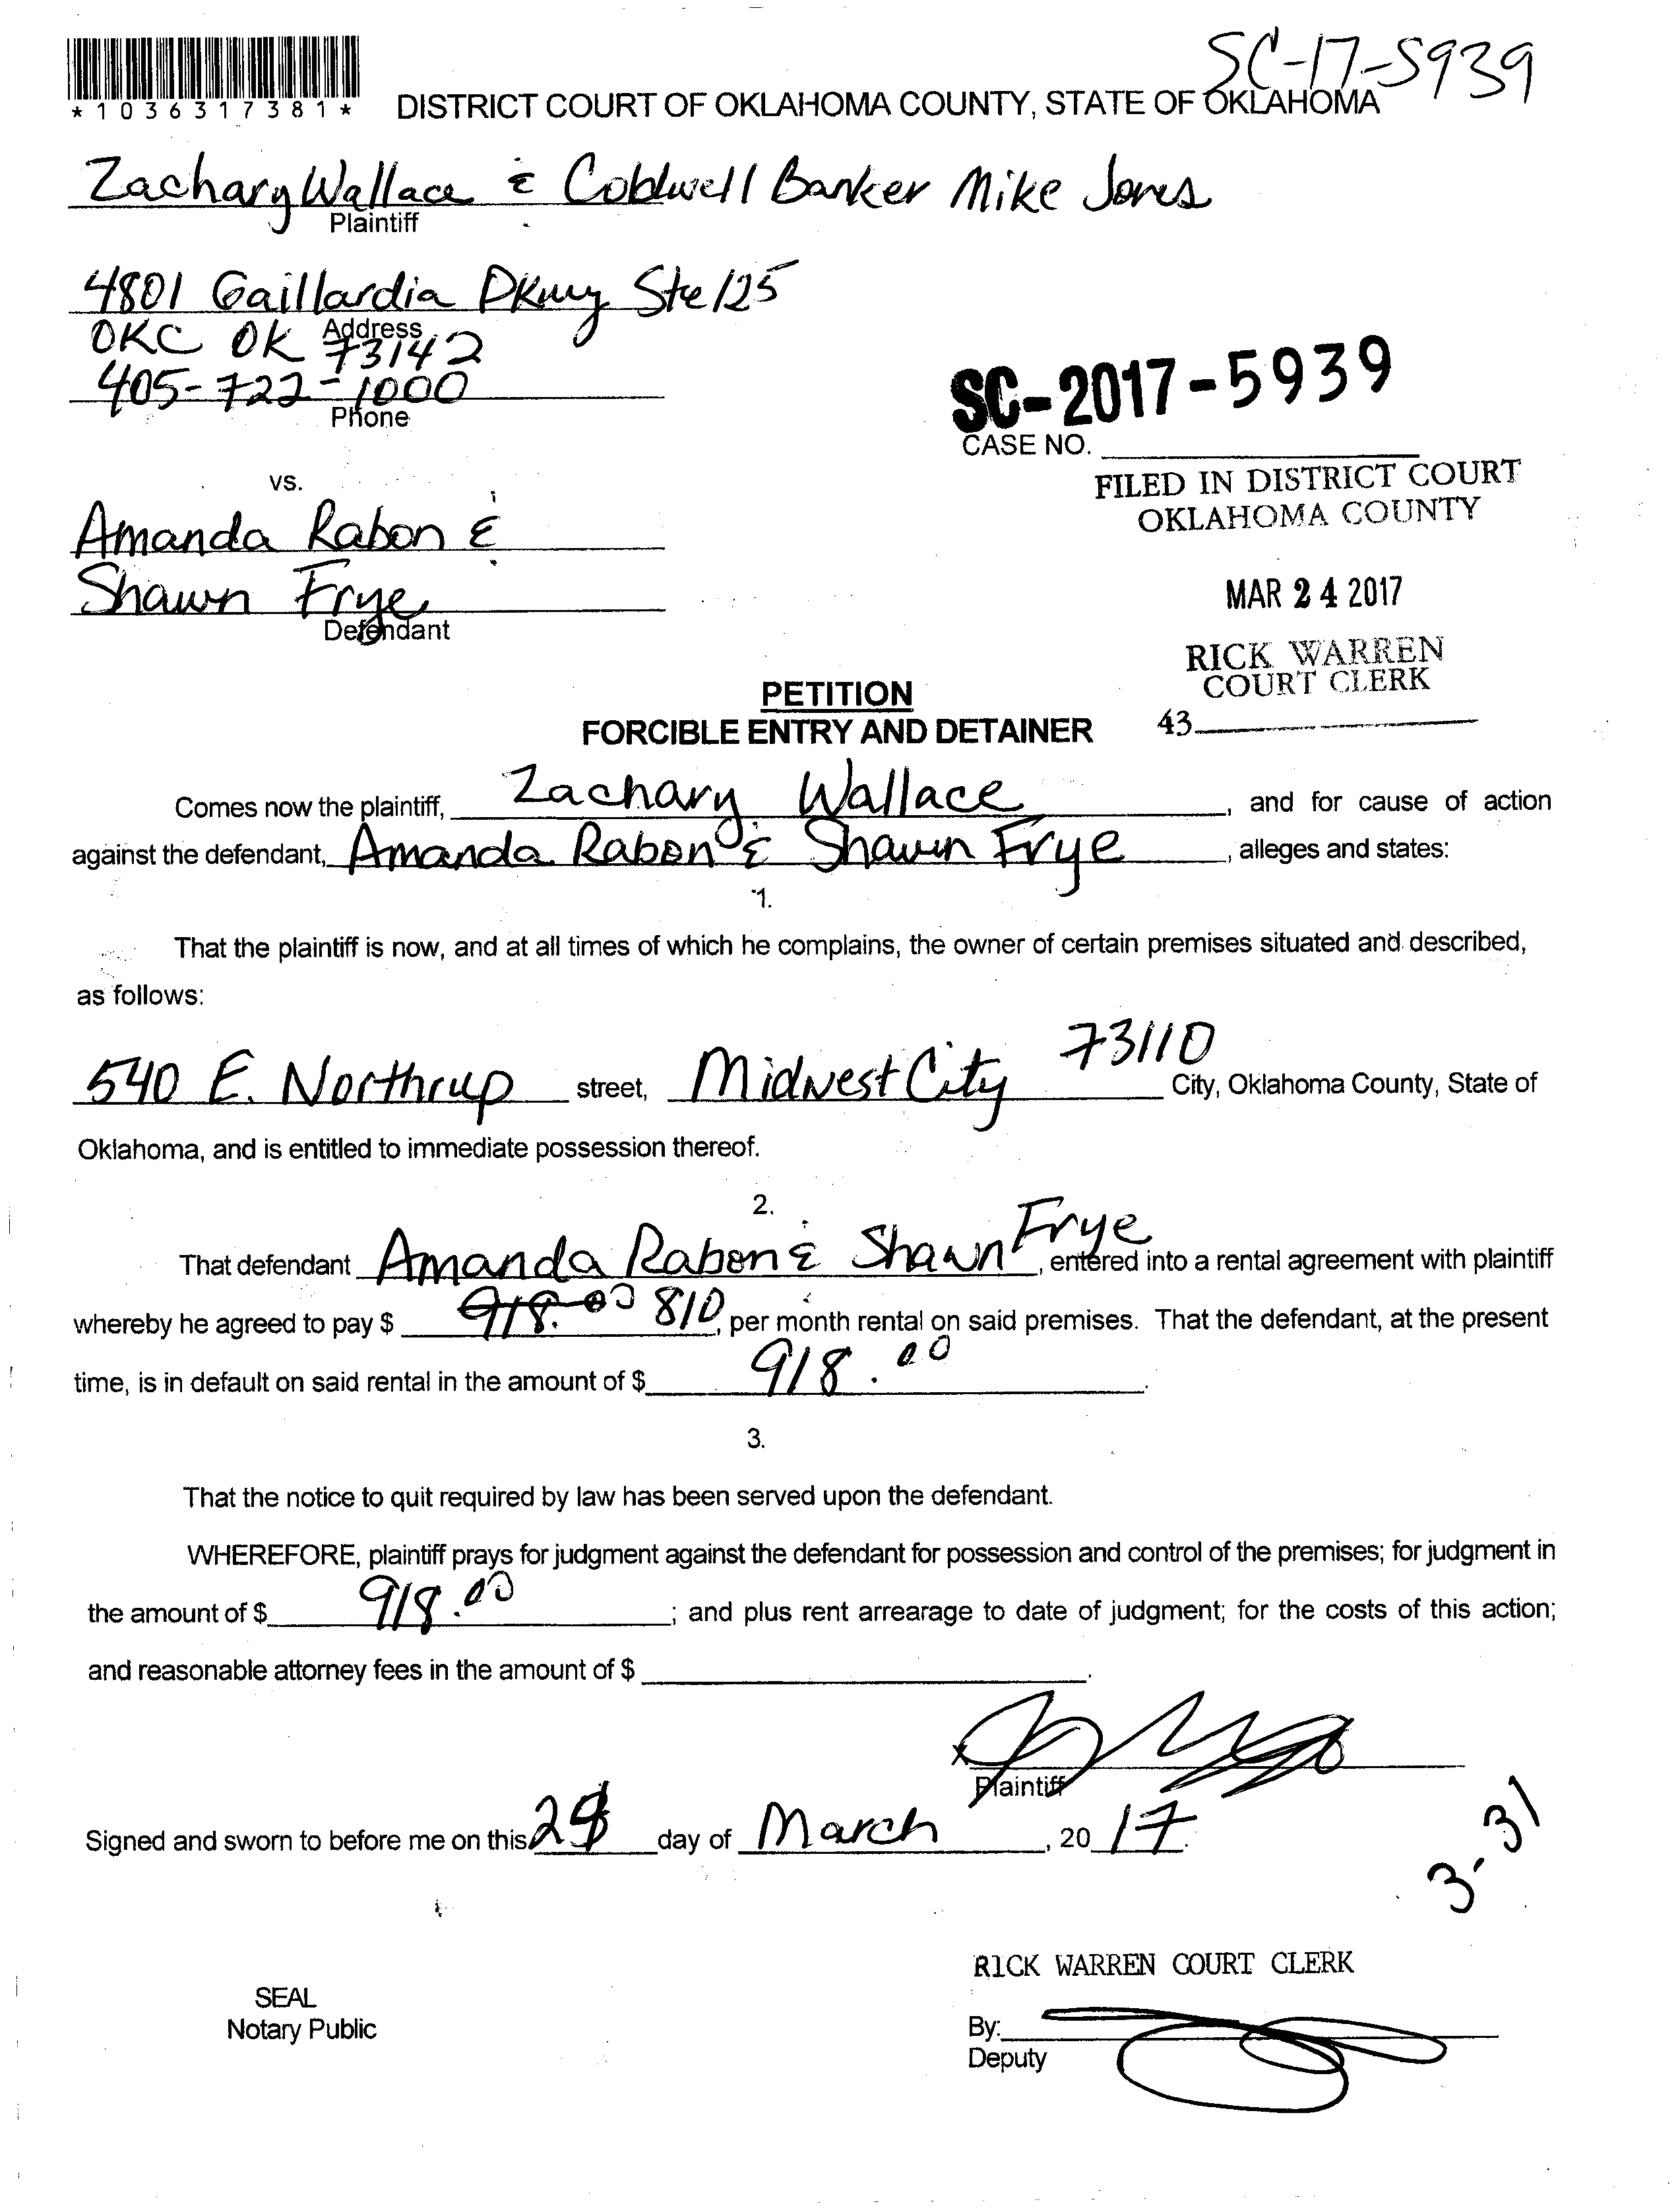 SC-17-5939
*1036317381*
DISTRICT COURT OF OKLAHOMA COUNTY, STATE OF OKLAHOMA
Zachary Wallace & Coldwell Banker Mike Jones
Plaintiff
4801 Gaillardia Pkwy Ste 125
Address
OKC OK 73142
405-722-1000
Phone
SC-2017-5939
CASE NO.
vs.
FILED IN DISTRICT COURT
OKLAHOMA COUNTY
Amanda Rabon &
Shawn Frye
Defendant
MAR 24 2017
RICK WARREN
COURT CLERK
43
PETITION
FORCIBLE ENTRY AND DETAINER
Comes now the plaintiff, Zachary Wallace, and for cause of action
against the defendant, Amanda Rabon & Shawn Frye, alleges and states:
1.
That the plaintiff is now, and at all times of which he complains, the owner of certain premises situated and described,
as follows:
540 E. Northrup street, Midwest City 73110 City, Oklahoma County, State of
Oklahoma, and is entitled to immediate possession thereof.
2.
That defendant Amanda Rabon & Shawn Frye, entered into a rental agreement with plaintiff
whereby he agreed to pay $ 918.00 810, per month rental on said premises. That the defendant, at the present
time, is in default on said rental in the amount of $ 918.00.
3.
That the notice to quit required by law has been served upon the defendant.
WHEREFORE, plaintiff prays for judgment against the defendant for possession and control of the premises; for judgment in
the amount of $ 918.00; and plus rent arrearage to date of judgment; for the costs of this action;
and reasonable attorney fees in the amount of $ .
x
Plaintiff
Signed and sworn to before me on this day of March, 2017.
3-31
RICK WARREN COURT CLERK
SEAL
Notary Public
By:
Deputy